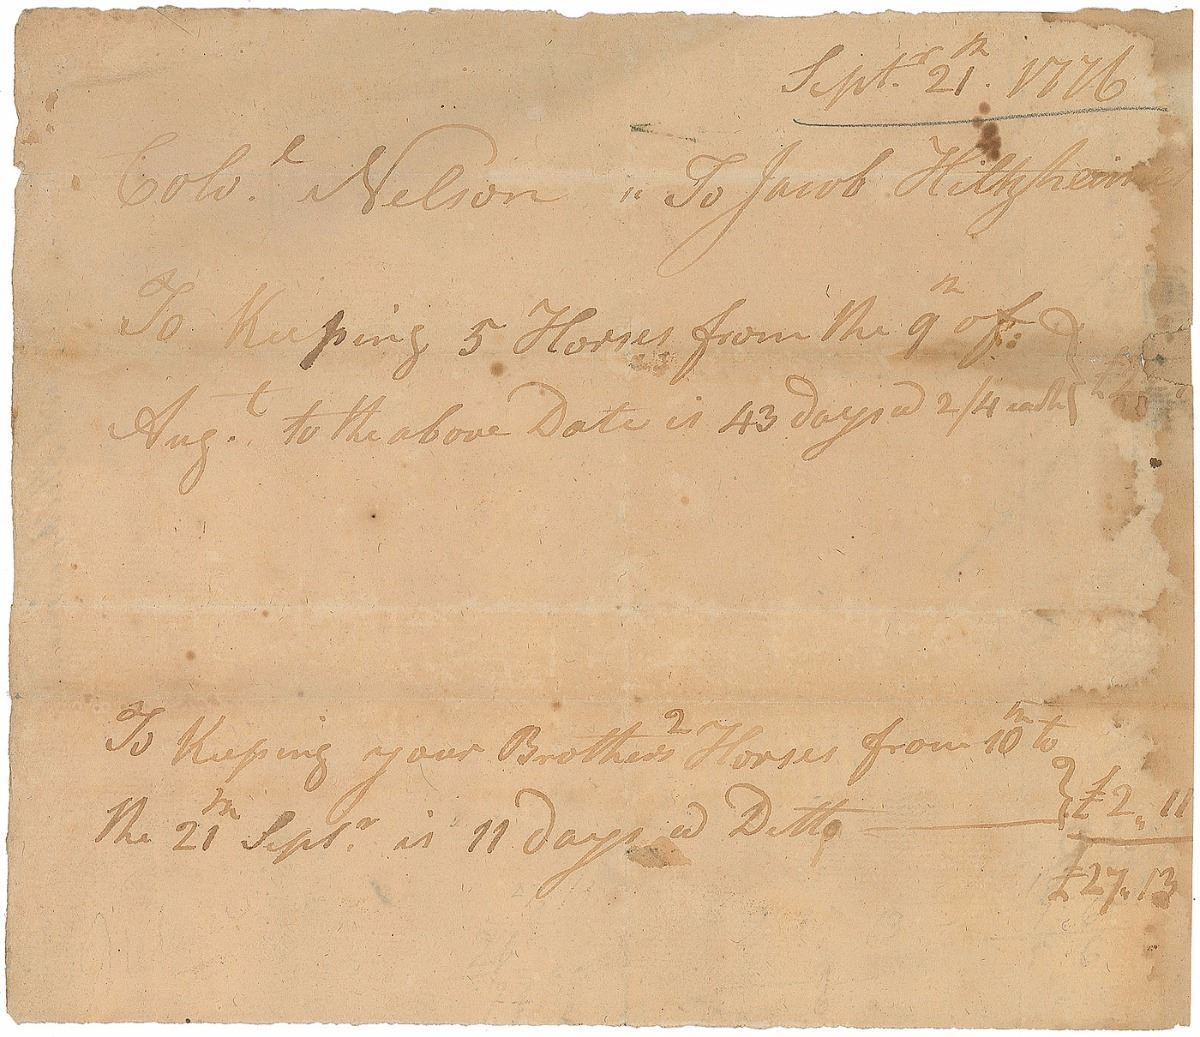 Septr. 21th. 1776
Colol. Nelson " To Jacob Hiltzheimer
To Keeping 5 Horses from the 9th of
Augt. to the above Date is 43 days @ 2/4 each
To Keeping your Brothers 2 Horses from 10th to
the 21th Septr. is 11 days @ Ditto £2,, 11
£27,, 13